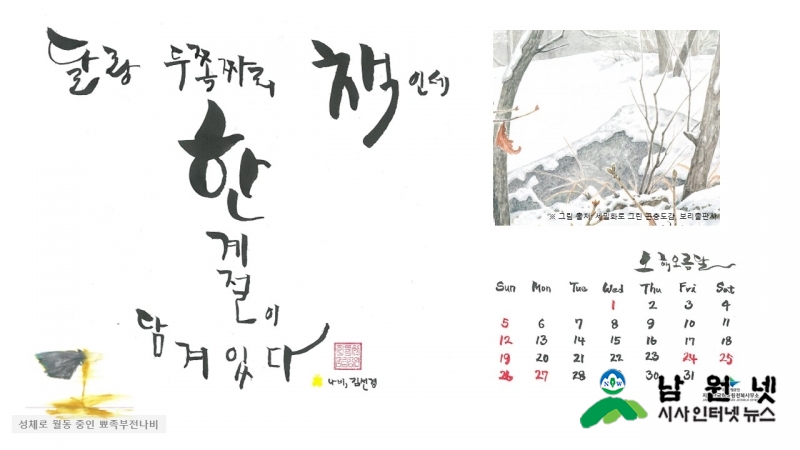 달랑 두쪽짜리 책인데
한
계
절이
담겨있다
나비, 김선경
성체로 월동 중인 뾰족부전나비
※ 그림 출처: 세밀화로 그린 곤충도감, 보리출판사
Sun Mon Tue Wed Thu Fri Sat
1 2 3 4
5 6 7 8 9 10 11
12 13 14 15 16 17 18
19 20 21 22 23 24 25
26 27 28 30 31
남원넷
시사인터넷뉴스